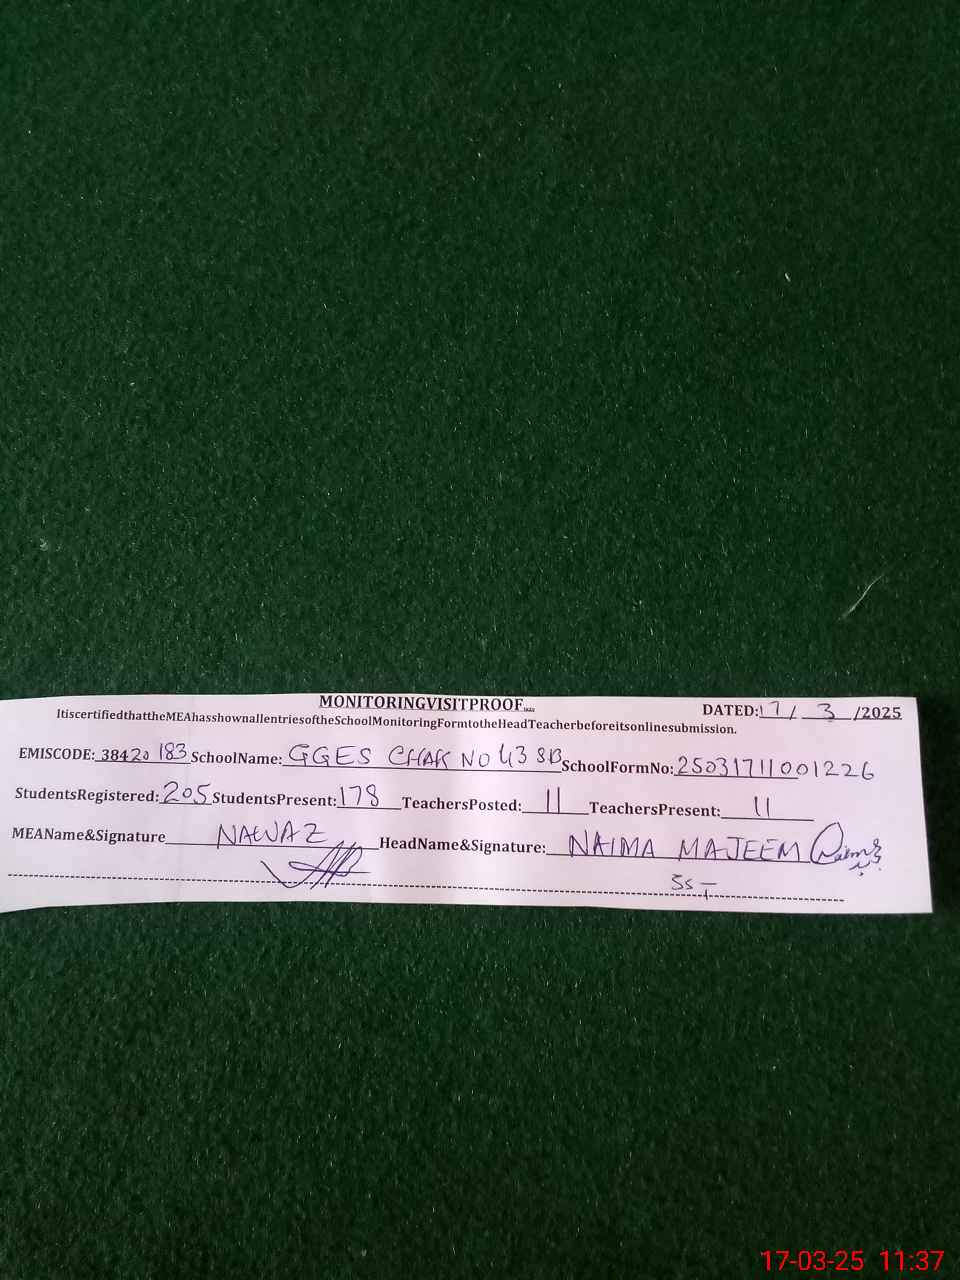 MONITORINGVISITPROOF
DATED:17/ 3 /2025
ItiscertifiedthattheMEAhasshownallentriesoftheSchoolMonitoringFormtotheHeadTeacherbeforeitsonlinesubmission.
EMISCODE: 38420183 SchoolName: GGES CHAK NO 43 SB SchoolFormNo: 25031711001226
StudentsRegistered: 205 StudentsPresent: 178 TeachersPosted: 11 TeachersPresent: 11
MEAName&Signature NAWAZ HeadName&Signature: NAIMA MAJEEM
17-03-25 11:37